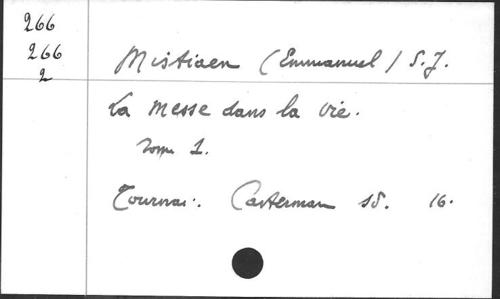 266
266
2
Mistiaen (Emmanuel) S.J.
La Messe dans la vie.
Tome 1.
Tournai: Casterman sd. 16.